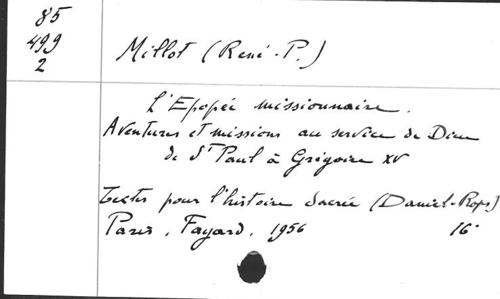 85
499
2
Millot (René-P.)
L'Epopée missionnaire.
Aventures et missions au service de Dieu
de St Paul à Grégoire XV
Textes pour l'histoire sacrée (Daniel-Rops)
Paris, Fayard, 1956 16°